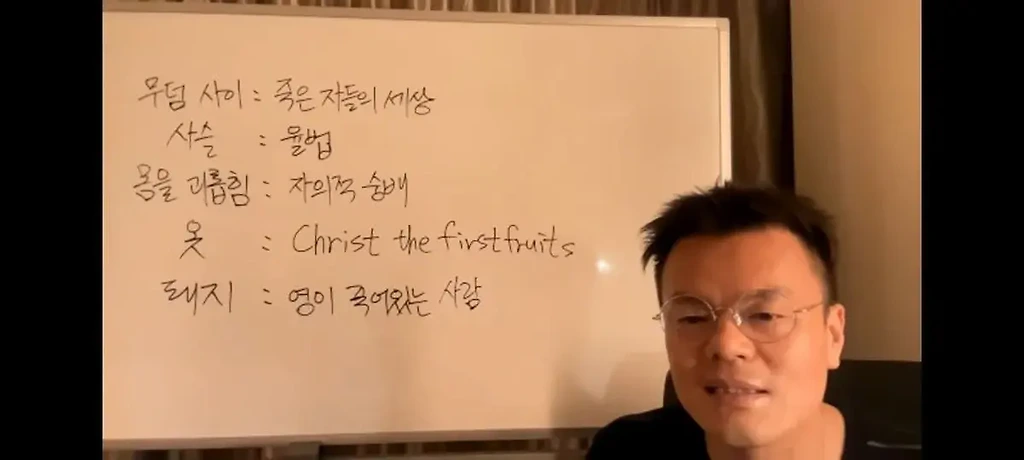 무덤 사이 : 죽은 자들의 세상
사슬 : 율법
몸을 괴롭힘 : 자의적 숭배
옷 : Christ the firstfruits
돼지 : 영이 죽어있는 사람